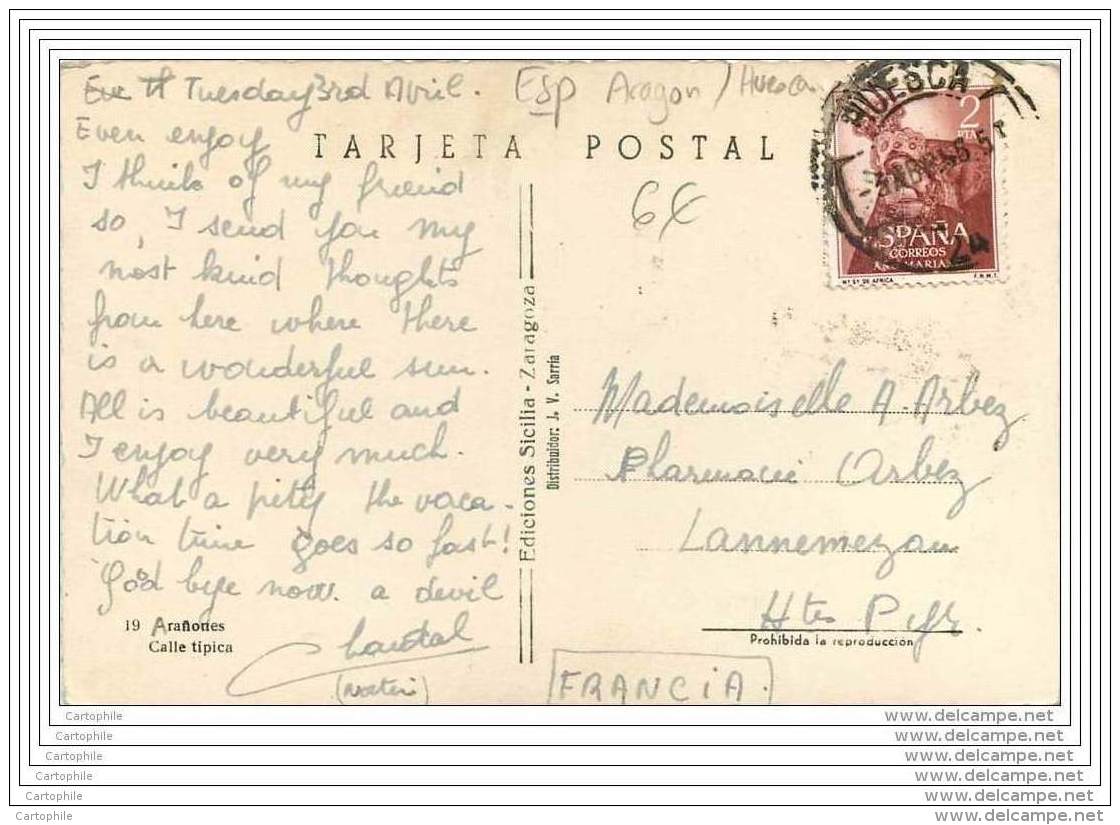 Tuesday 3rd Avril.
Even enjoy
I think of my friend
so, I send you my
most kind thoughts
from here where there
is a wonderful sun.
All is beautiful and
I enjoy very much.
What a pity the vaca-
tion time goes so fast!
Good bye now. a devil
Chantal
Esp Aragon / Huesca
TARJETA POSTAL
6€
HUESCA
2
PTA
ESPAÑA
CORREOS
AÑO MARIANO
Nª Sª DE AFRICA
F.N.M.T.
Ediciones Sicilia - Zaragoza
Distribuidor: J. V. Sarría
Mademoiselle A. Arbez
Pharmacie Arbez
Lannemezan
Htes Pyr.
Prohibida la reproducción
FRANCIA.
19 Arañones
Calle típica
Cartophile
Cartophile
Cartophile
Cartophile
Cartophile
Cartophile
www.delcampe.net
www.delcampe.net
www.delcampe.net
www.delcampe.net
www.delcampe.net
www.delcampe.net